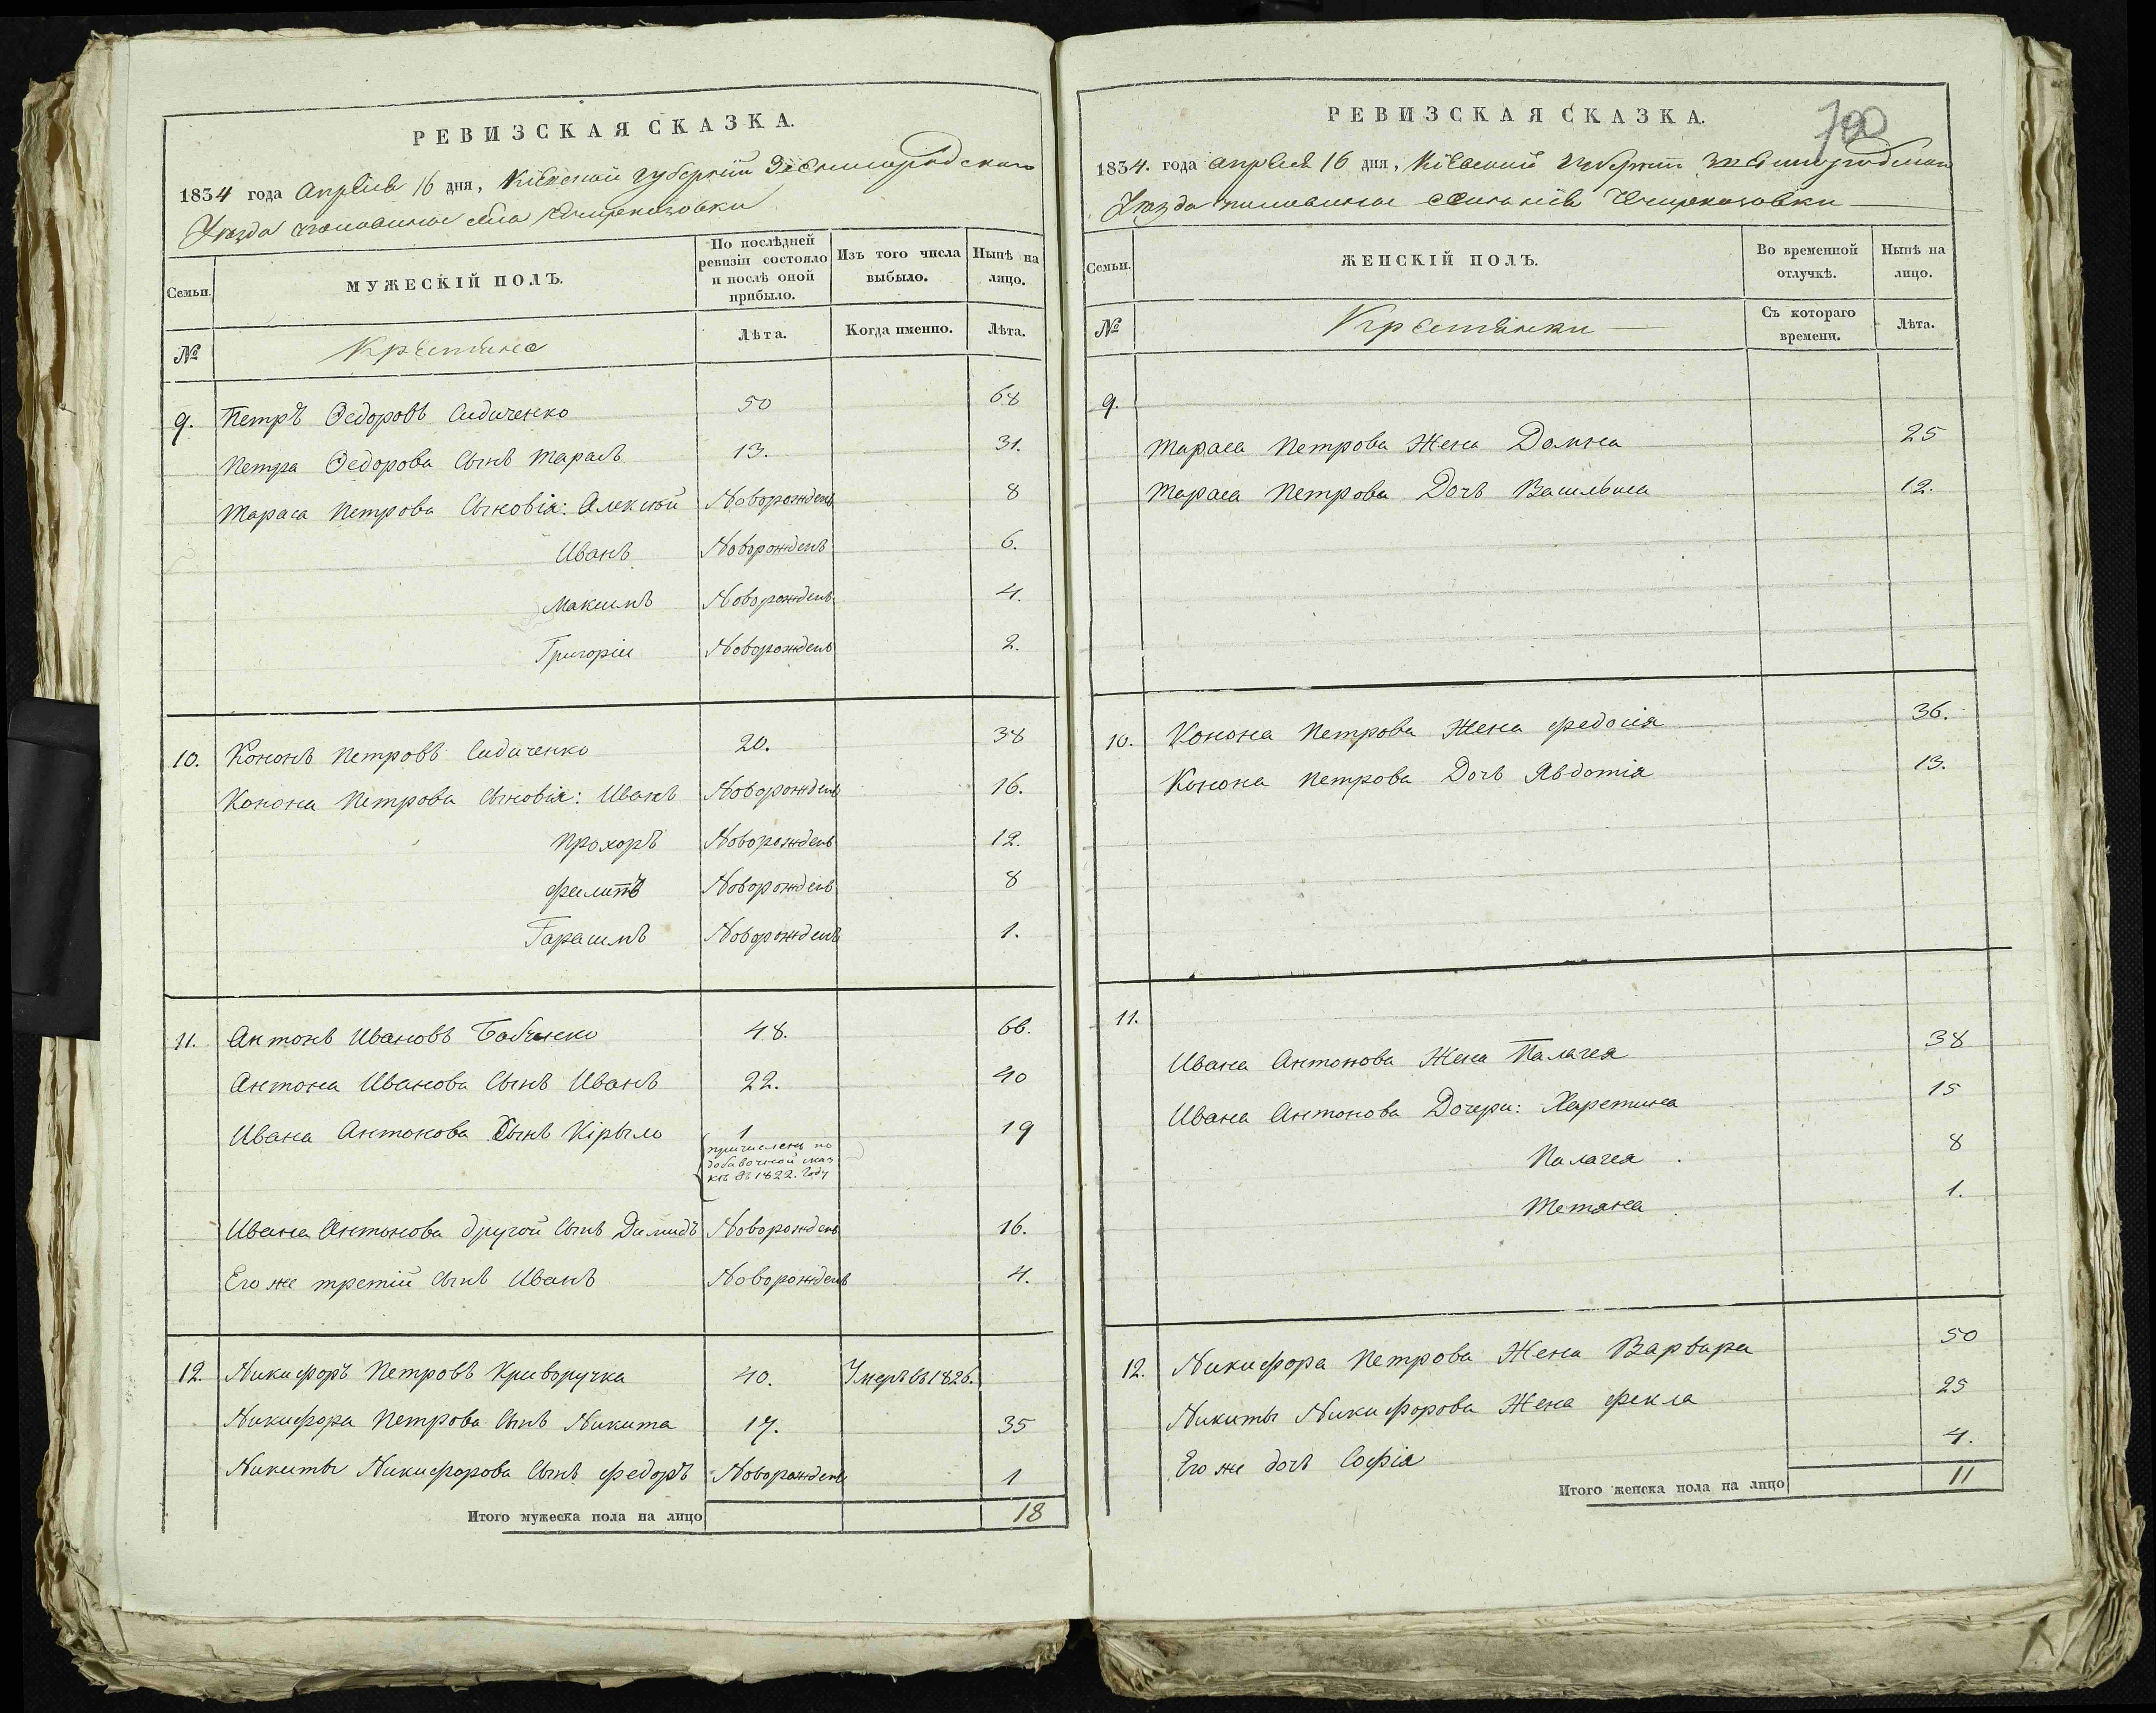 РЕВИЗСКАЯ СКАЗКА.
1834 года Апреля 16 дня, Кіевской губерніи Звенигородского
Уезда села
Семьи.
МУЖЕСКІЙ ПОЛЪ.
По послѣдней ревизіи состояло и послѣ оной прибыло.
Изъ того числа выбыло.
Нынѣ на лицо.
№
Крестьяне
Лѣта.
Когда именно.
Лѣта.
9. Петръ Федоровъ Сидиченко 50 68
Петра Федорова Сынъ Тарасъ 13. 31.
Тараса Петрова Сыновія: Алексей Новорожденъ 8
Иванъ Новорожденъ 6.
Максимъ Новорожденъ 4.
Григоріи Новорожденъ 2.
10. Кононъ Петровъ Сидиченко 20. 38
Конона Петрова Сыновія: Иванъ Новорожденъ 16.
Прохоръ Новорожденъ 12.
Филипъ Новорожденъ 8
Гарасимъ Новорожденъ 1.
11. Антонъ Ивановъ Бабченко 48. 66.
Антона Иванова Сынъ Иванъ 22. 40
Ивана Антонова Сынъ Кірыло 1 19
причисленъ по
добавочной сказ
кѣ въ 1822. году
Ивана Антонова другой Сынъ Димидъ Новорожденъ 16.
Его же третій Сынъ Иванъ Новорожденъ 4.
12. Никифоръ Петровъ Криворучка 40. Умеръ въ 1826.
Никифора Петрова Сынъ Никита 17. 35
Никиты Никифорова Сынъ Федоръ Новорожденъ 1
Итого мужеска пола на лицо 18
РЕВИЗСКАЯ СКАЗКА.
700
1834. года Апреля 16 дня, Кіевской Губерніи Звенигородскаго
Уезда
Семьи.
ЖЕНСКІЙ ПОЛЪ.
Во временной отлучкѣ.
Нынѣ на лицо.
№
Крестьянки
Съ котораго времени.
Лѣта.
9.
Тараса Петрова Жена Домна 25
Тараса Петрова Дочь Василыса 12.
10. Конона Петрова Жена Федосія 36.
Конона Петрова Дочь Явдотія 13.
11.
Ивана Антонова Жена Палагея 38
Ивана Антонова Дочери: Харетина 15
Палагея 8
Тетяна 1.
12. Никифора Петрова Жена Варвара 50
Никиты Никифорова Жена Фекла 25
Его же дочь Софія 4.
Итого женска пола на лицо 11